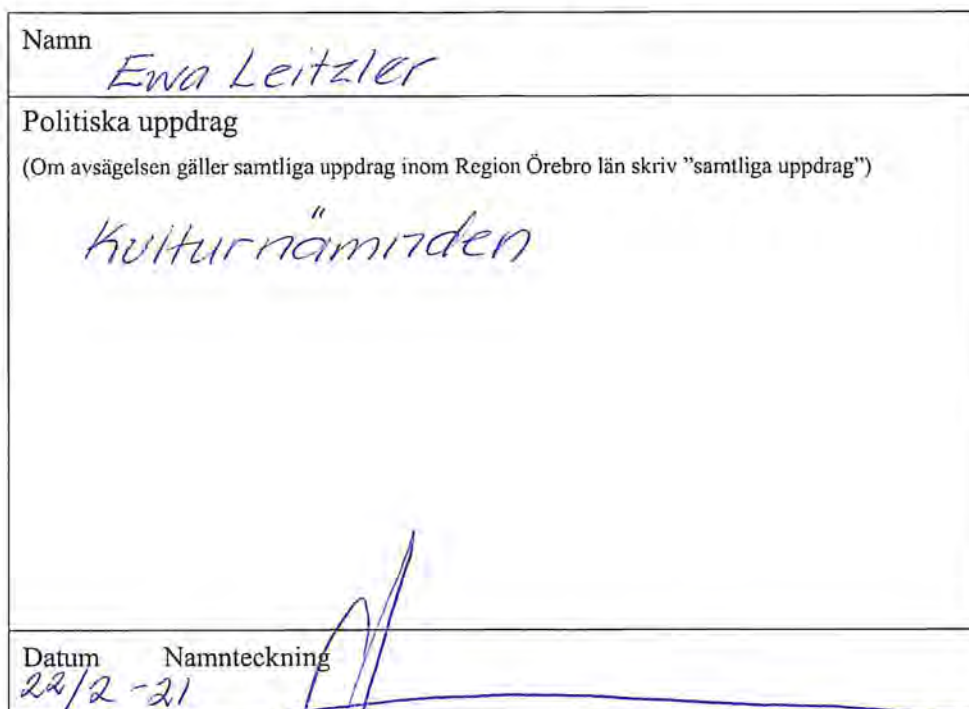 Namn
Ewa Leitzler
Politiska uppdrag
(Om avsägelsen gäller samtliga uppdrag inom Region Örebro län skriv "samtliga uppdrag")
Kulturnämnden
Datum Namnteckning
22/2 -21